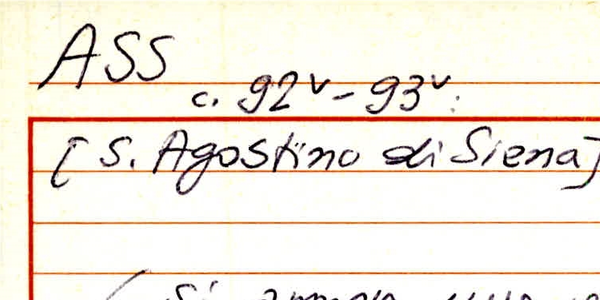 ASS
c. 92v - 93v:
[S. Agostino di Siena]